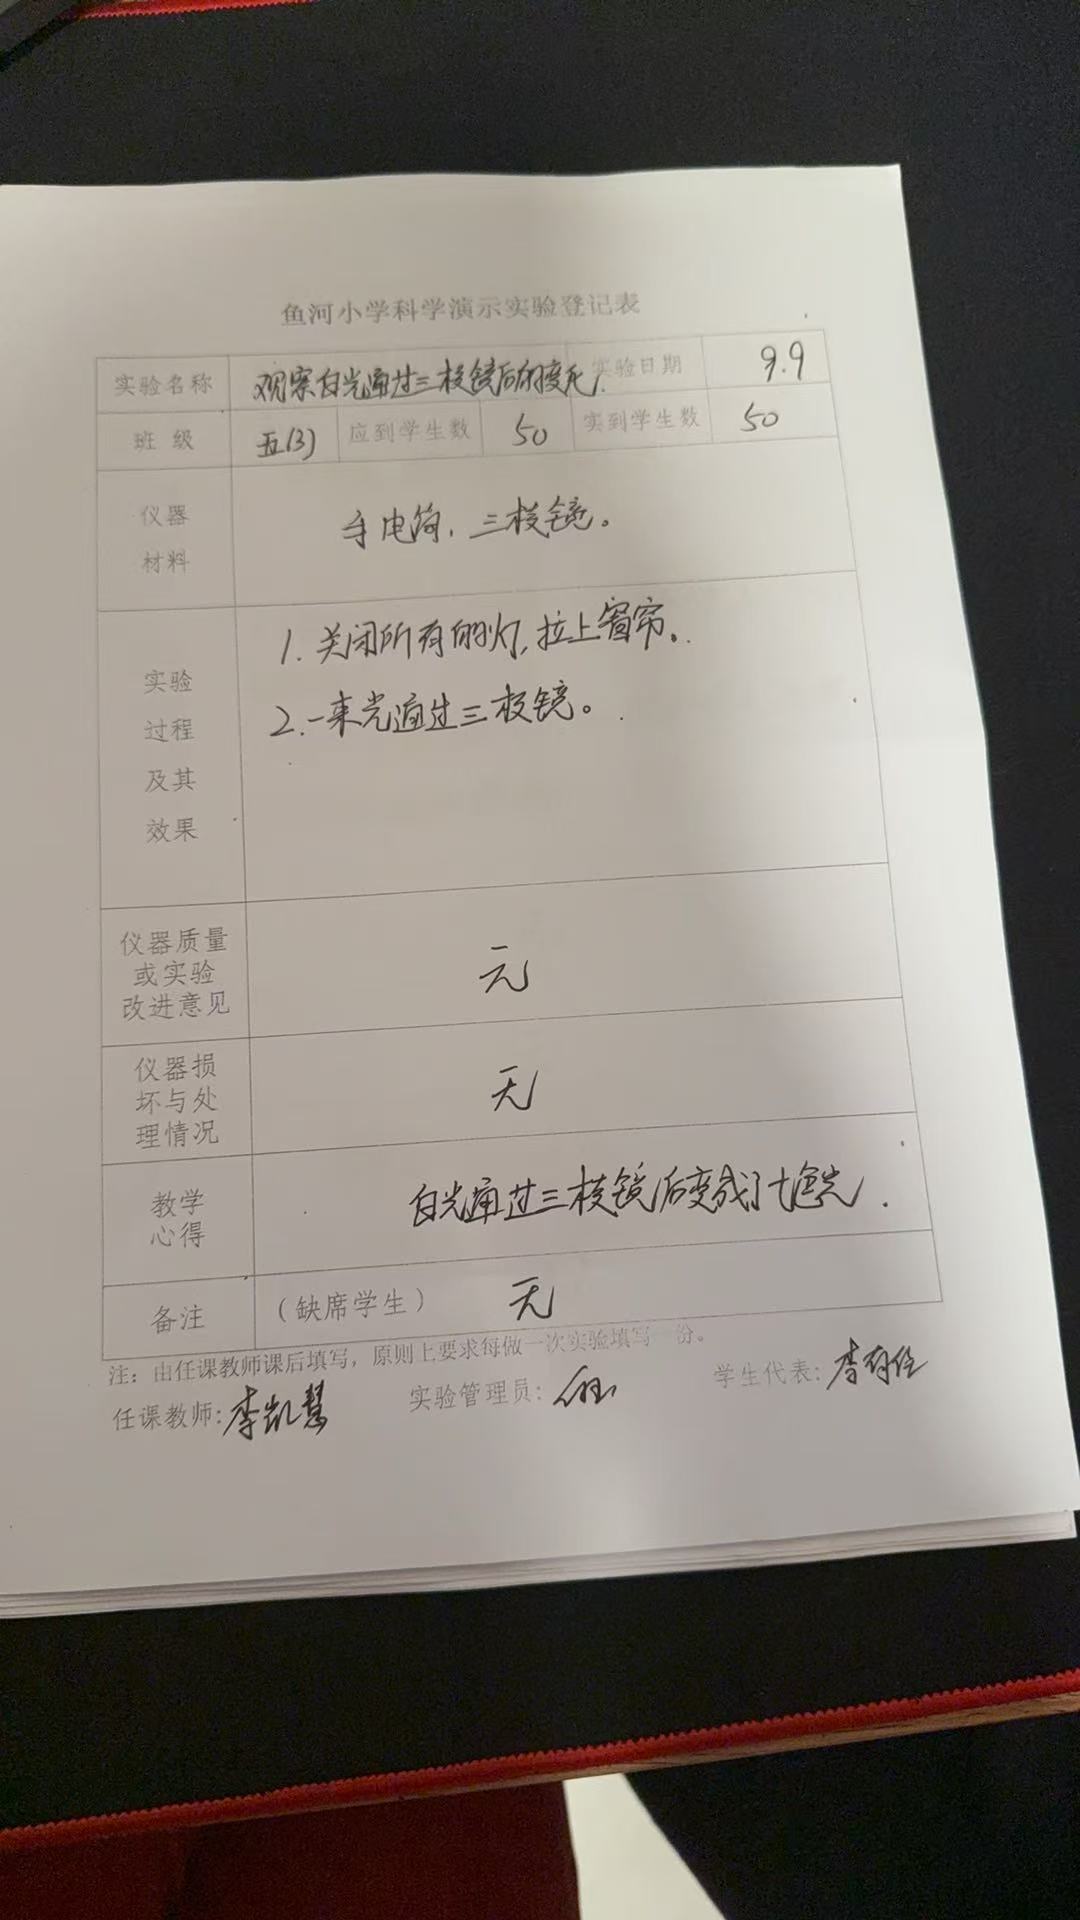 鱼河小学科学演示实验登记表
实验名称 观察白光通过三棱镜后的变化. 实验日期 9.9
班 级 五(3) 应到学生数 50 实到学生数 50
仪器
材料
手电筒. 三棱镜。
实验
过程
及其
效果
1. 关闭所有的灯, 拉上窗帘。
2. 一束光通过三棱镜。
仪器质量
或实验
改进意见
无
仪器损
坏与处
理情况
无
教学
心得
白光通过三棱镜后变成了七色光.
备注 (缺席学生) 无
注：由任课教师课后填写，原则上要求每做一次实验填写一份。
任课教师: 李凯慧 实验管理员: 学生代表: 李